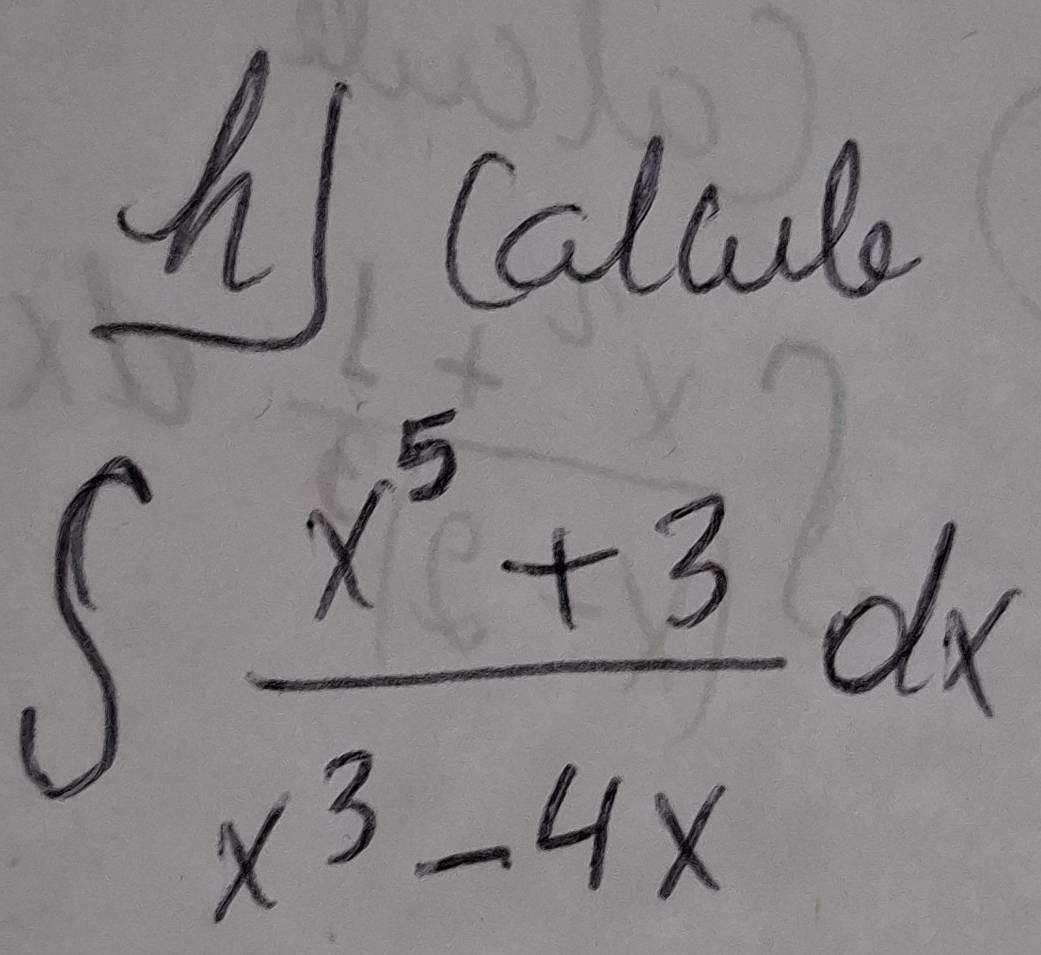 h) Calcule
∫ (x⁵ + 3)/(x³ - 4x) dx